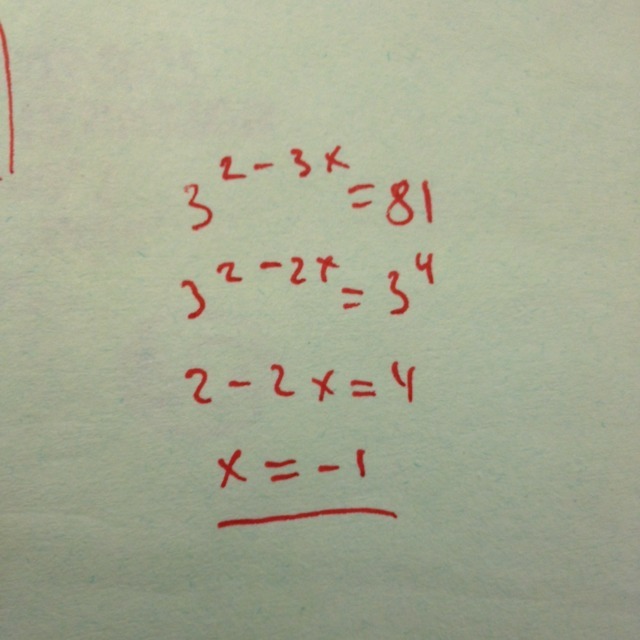 3^{2-3x} = 81
3^{2-2x} = 3^4
2-2x=4
x=-1